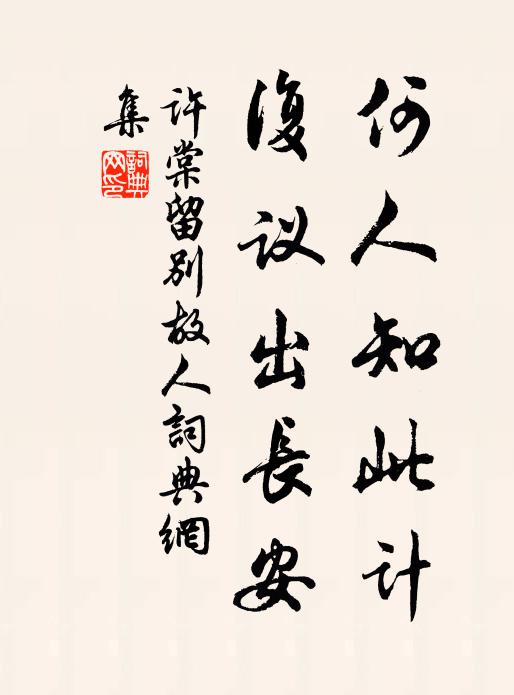 何人知此计
復议出長安
许棠留别故人詞典網
集
詞典
网印